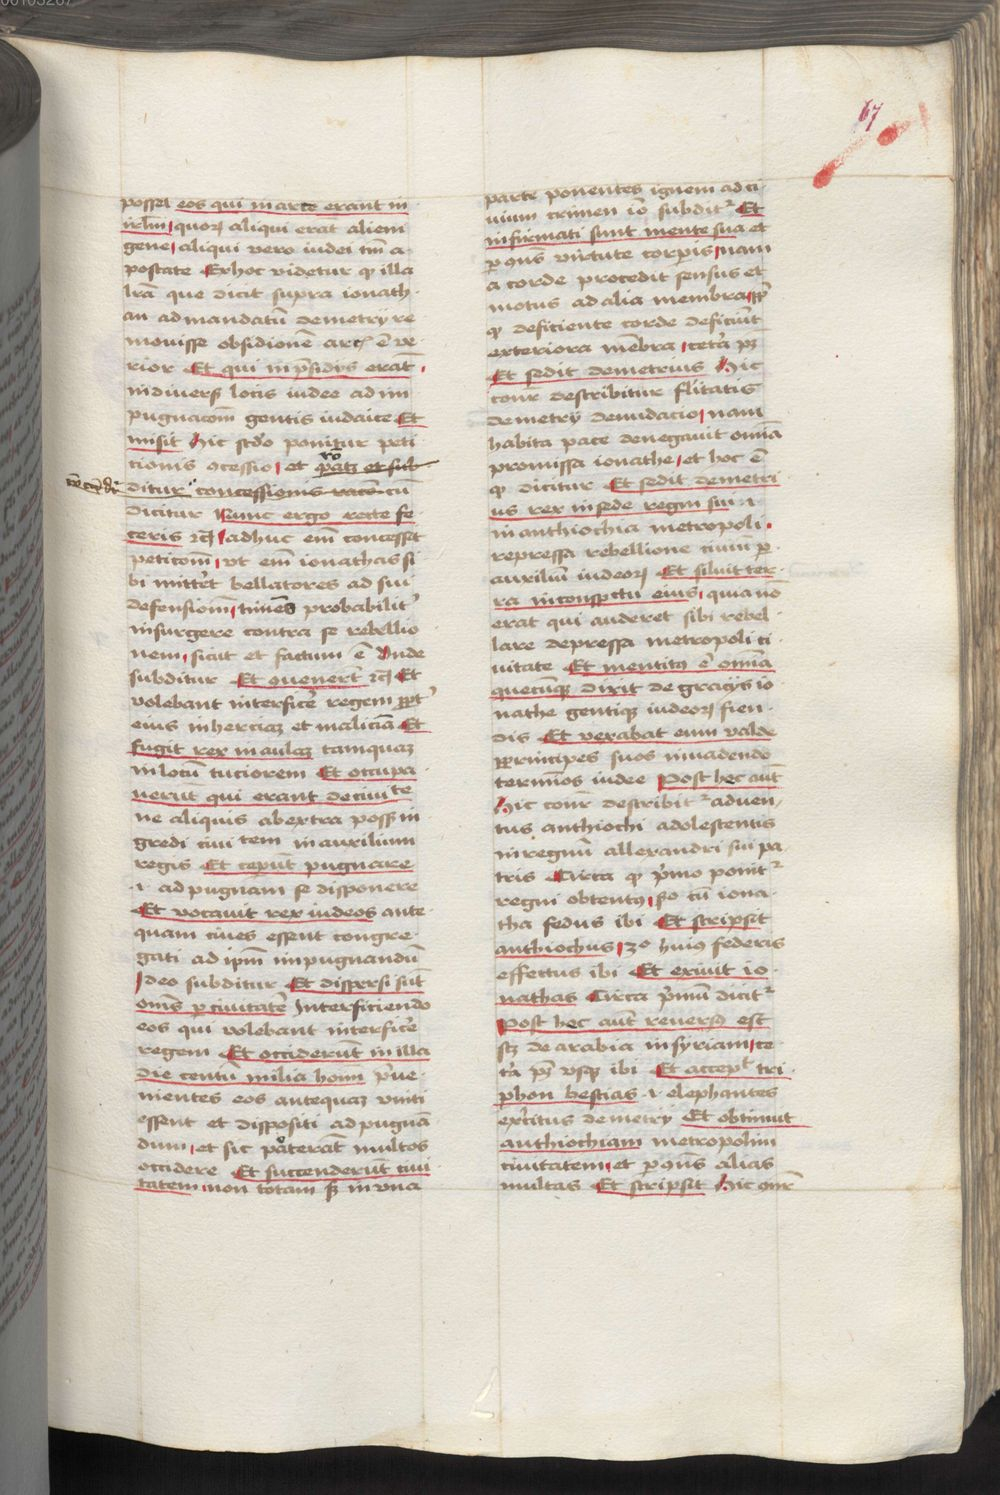 00103267
67
posset eos qui in arce erant in
irlm̄ quoꝝ aliqui erāt alieni
gene aliqui vero iudei tm̄ a
postate Ex hoc videtur ꝙ illa
lrā que dicit supra ionath
an ad mandatū demetry re
mouisse obsidionē arc̄ ē ve
rior Et qui in p̄sidys erāt
in diuers̄ locis iudee ad im
pugnacōm gentis iudaice Et
misit Hic scd̄o ponitur peti
tionis ꝯcessio et
ditur concessionis racō cū
dicitur Nunc ergo recte fe
ceris ⁊c̄ adhuc em̄ concesset
peticōm vt em̄ ionathas si
bi mittēt bellatores ad sui
defensionē timens probabilit̉
insurgere contra se rebellio
nem sicut et factum ē Unde
subditur Et ꝯuenerūt ⁊c̄ Et
volebant interficē regem ꝓpt̉
eius inherciaꝫ et maliciā Et
fugit rex in aulaꝫ tamquaꝫ
in locū tuciorem Et occupa
uerūt qui erant de ciuite
ne aliquis ab extra poss̄ in
gredi ciui tem in auxilium
regis Et ceperūt pugnare
.i. ad pugnam se disponere
Et vocauit rex iudeos ante
quam ciues essent congre
gati ad ipm̄ impugnandū
Ideo subditur Et dispersi sūt
om̄s ꝑ ciuitatē Interficiendo
eos qui volebant interficē
regem Et occiderūt in illa
die centū milia homī p̄ue
nientes eos antequaꝫ vniti
essent et dispositi ad pugnā
dum et sic poterāt multos
occidere Et succenderūt ciui
tatem non totam sꝫ in vna
parte ponentes ignem ad ci
uium crimen iō subdit᷑ Et
infirmati sunt mente sua et
ꝑ ꝯn̄s virtute corpis nam
a corde procedit sensus et
motus ad alia membra
ꝙ deficiente corde deficiūt
exteriora mēbra cetā pꝫ
Et sedit demetrius Hic
conr̄ describitur flītatis
demetry denudacio nam
habita pace denegauit omīa
promissa ionathe et hoc ē
ꝙ dicitur Et sedit demetri
us rex in sede regni sui .i.
in anthiochia metropoli
repressa rebellione ciuiū ꝑ
auxiliū iudeoꝝ Et siluit ter
ra in conspctu eius quia nō
erat qui auderet sibi rebel
lare depressa metropoli ci
uitate Et mentitꝰ ē omīa
quecūqꝫ dixit de gracijs io
nathe gentiqꝫ iudeoꝝ fien
dis Et vexabat eum valde
ꝑ principes suos inuadendo
terminos iudee Post hec aūt
Hic conr̄ describit᷑ aduen
tus anthiochi adolescentis
in regnū allexandri sui pa
tris Circa ꝙ p̄mo ponit᷑
regni obtentꝰ scdo cū iona
tha fedus ibi Et scripsit
anthiochus 3o huiꝰ federis
effectus ibi Et exiuit io
nathas Circa p̄mū dicit᷑
Post hec aūt reuersꝰ est
scꝫ de arabia in syriam ce
tā pꝫ vsqꝫ ibi Et accepit tri
phon bestias .i. elephantes
excītus demetry Et obtinuit
anthiochiam metropolim
ciuitatem et ꝑ ꝯn̄s alias
multas Et scripsit Hic ꝯnr̄